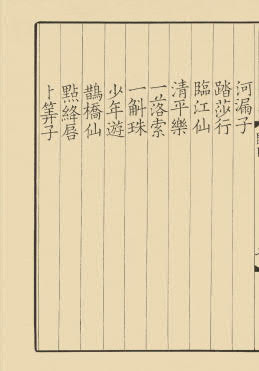 河漏子
踏莎行
臨江仙
清平樂
一落索
一斛珠
少年遊
鵲橋仙
點絳唇
卜筭子